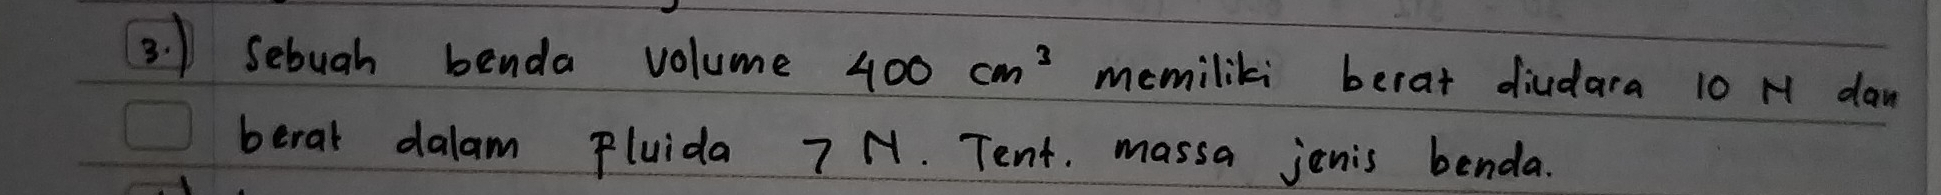 3.) Sebuah benda volume 400 cm³ memiliki berat diudara 10 N dan
berat dalam Fluida 7 N. Tent. massa jenis benda.